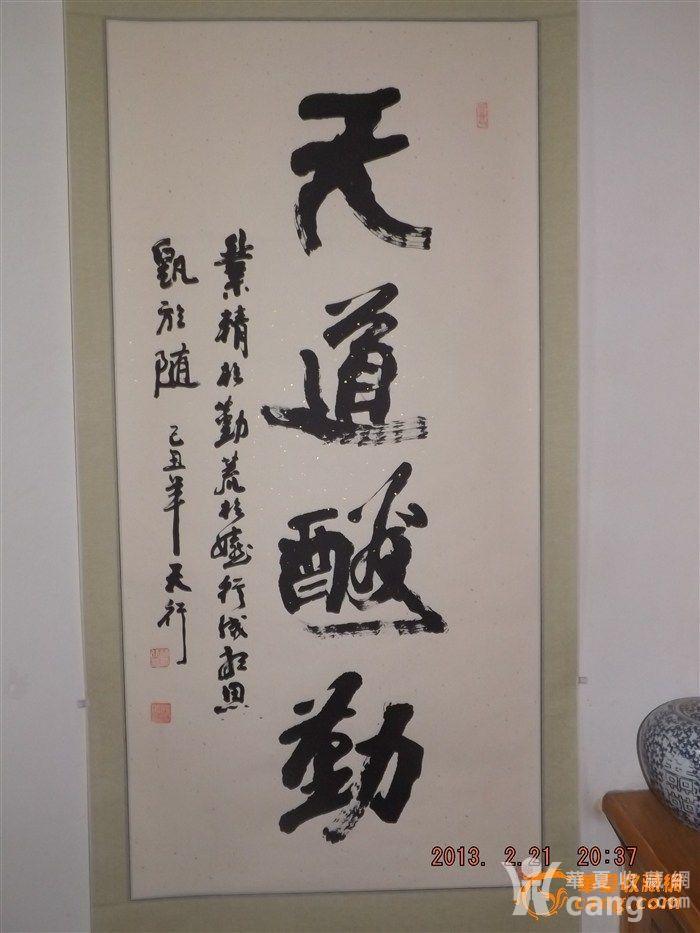 天道酬勤
業精於勤荒於嬉行成於思
毁於随 己丑年 天行
2013. 2.21 20:37
華夏收藏網
cang.com